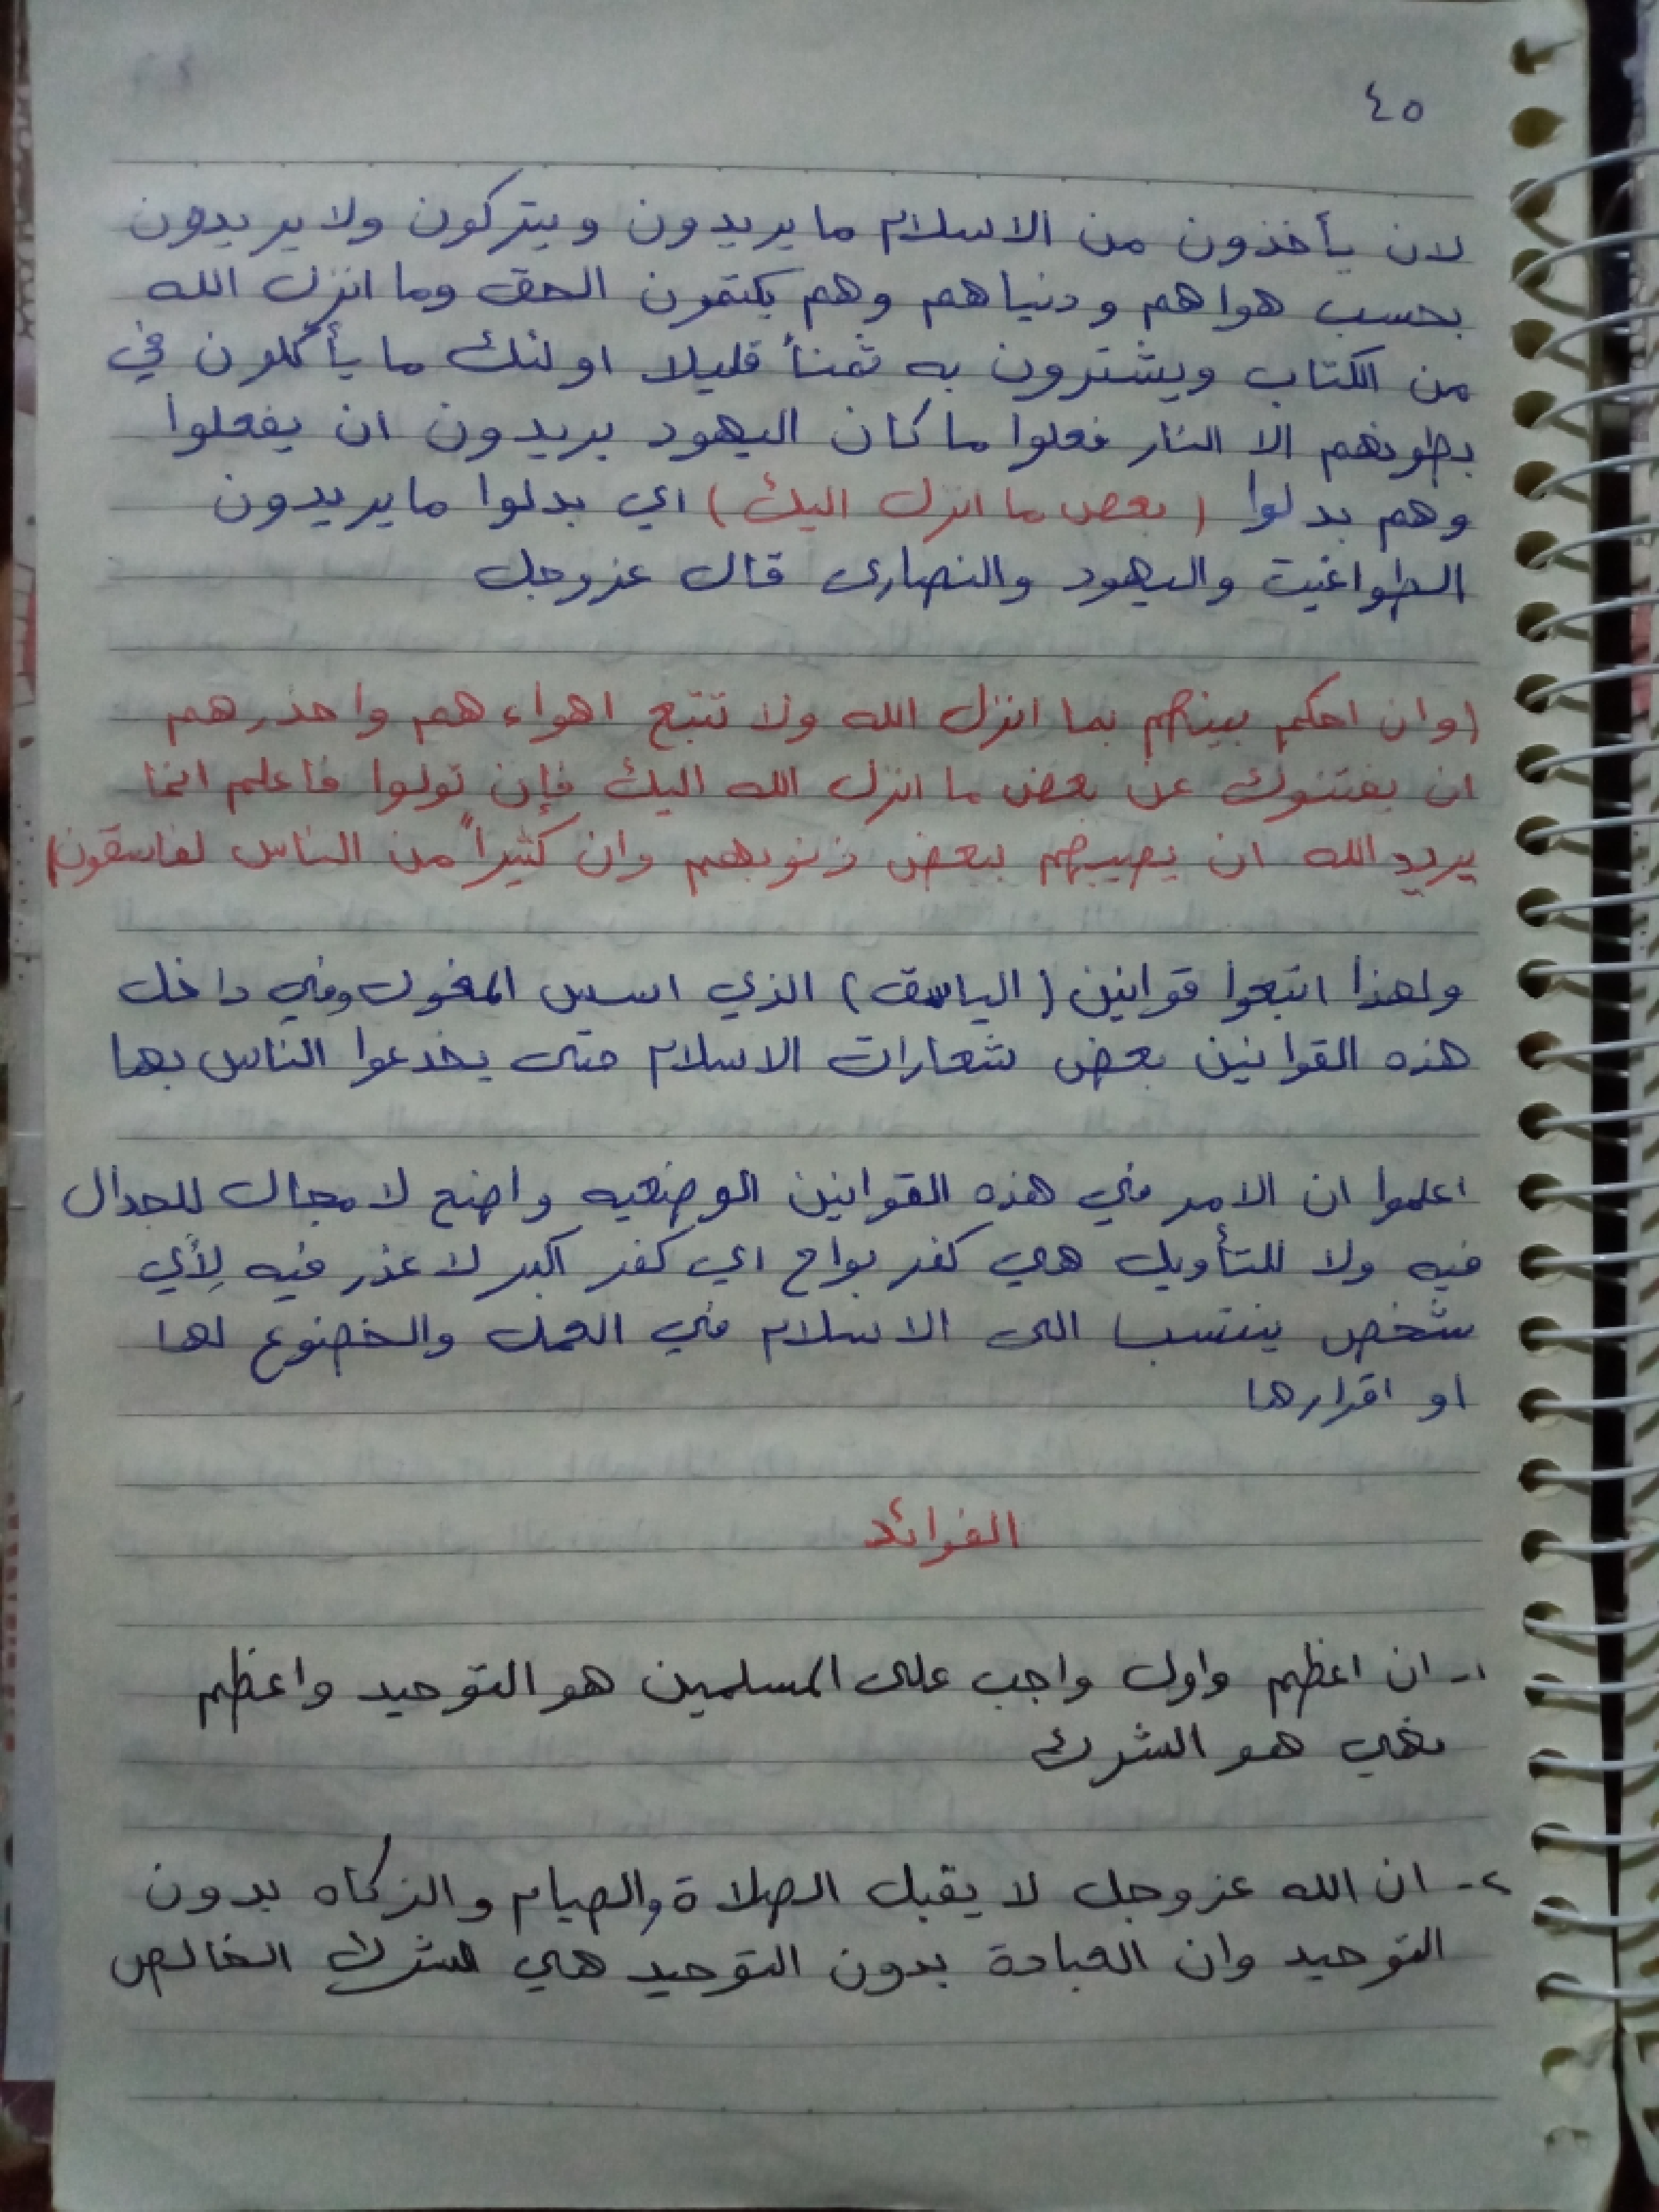 ٤٥
لان يأخذون من الاسلام ما يريدون ويتركون ولا يريدون
بحسب هواهم ودنياهم وهم يكتمون الحق وما انزل الله
من الكتاب ويشترون به ثمناً قليلا اولئك ما يأكلون في
بطونهم الا النار فعلوا ما كان اليهود يريدون ان يفعلوا
وهم بدلوا (بعض ما انزل اليك) اي بدلوا ما يريدون
الطواغيت واليهود والنصارى قال عزوجل
(وان احكم بينهم بما انزل الله ولا تتبع اهواءهم واحذرهم
ان يفتنوك عن بعض ما انزل الله اليك فإن تولوا فاعلم انما
يريد الله ان يصيبهم ببعض ذنوبهم وان كثيراً من الناس لفاسقون)
ولهذا اتبعوا قوانين (الياسق) الذي اسس المغول وفي داخل
هذه القوانين بعض شعارات الاسلام حتى يخدعوا الناس بها
اعلموا ان الامر في هذه القوانين الوضعيه واضح لا مجال للجدال
فيه ولا للتأويل هي كفر بواح اي كفر اكبر لا عذر فيه لِأي
شخص ينتسب الى الاسلام في العمل والخضوع لها
او اقرارها
الفوائد
١- ان اعظم واول واجب على المسلمين هو التوحيد واعظم
نهي هو الشرك
٢- ان الله عزوجل لا يقبل الصلاة والصيام والزكاه بدون
التوحيد وان العبادة بدون التوحيد هي الشرك الخالص